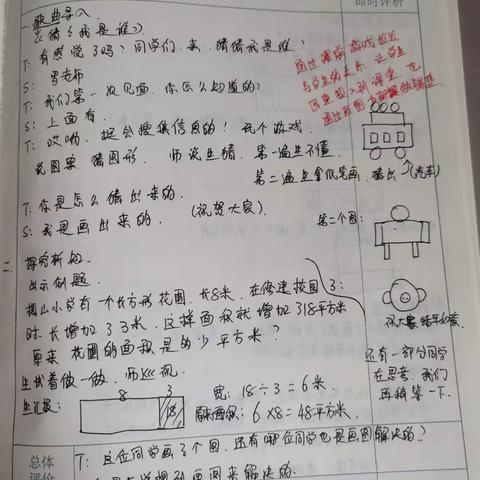 即时评析
一、歌曲导入
《猜猜我是谁》
T: 有感觉了吗?同学们,来,猜猜我是谁?
S: 罗老师
T: 我们第一次见面,你怎么知道的?
S: 上面有.
T: 哎哟,挺会搜集信息的!玩个游戏.
看图案 猜图形. 师说生猜. 第一遍生不懂.
第二遍生拿纸笔画,猜出 (汽车)
T: 你是怎么猜出来的.
S: 我是画出来的. (祝贺大家)
第二个图:
3:
祝大家
二、探究新知.
出示例题.
梅山小学有一个长方形花圃,长8米,在修建校园
时,长增加了3米,这样面积就增加了18平方米
原来花圃的面积是多少平方米?
生试着做一做,师巡视.
生汇报:
8 3
18
宽: 18÷3=6米.
6×8=48平方米.
还有一部分同学
在思考,我们
再稍等一下.
T: 这位同学画了个图,还有哪位同学也是画图解决的?
总体
评价
画图来解决的.